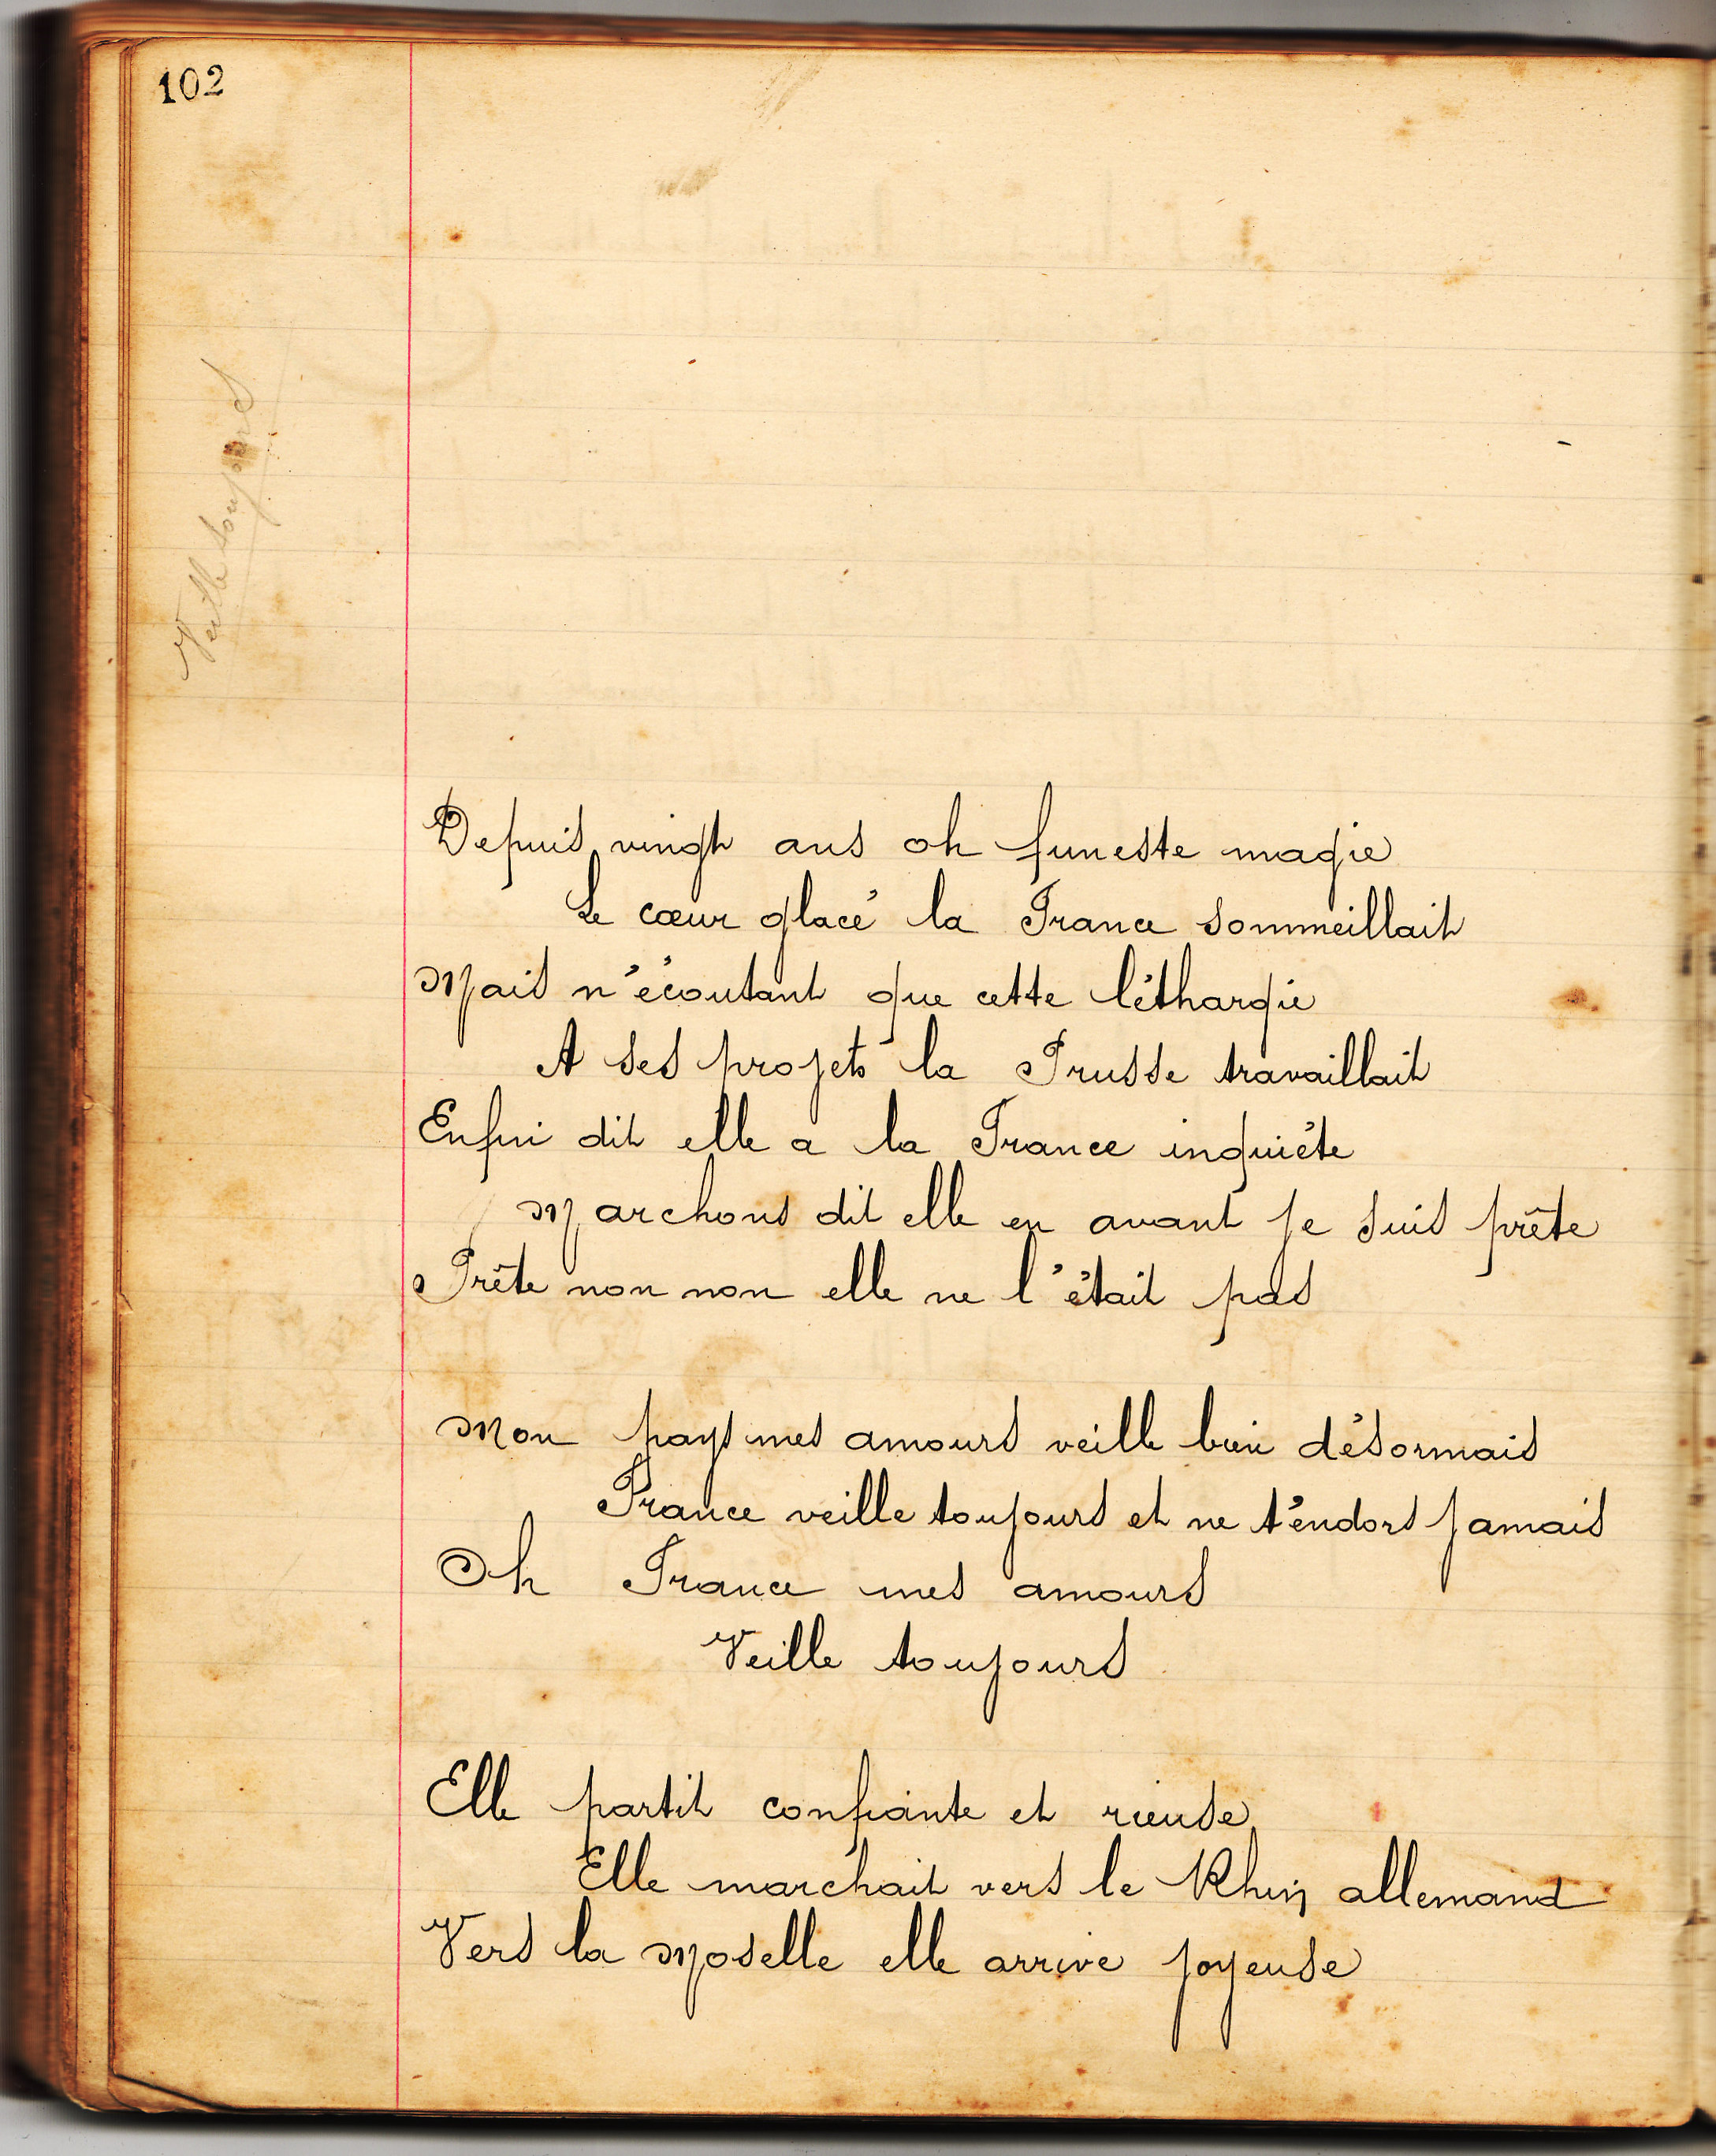 102
Veille toujours
Depuis vingt ans oh funeste magie
Le cœur glacé la France sommeillait
Mais n'écoutant que cette léthargie
A ses projets la Prusse travaillait
Enfin dit elle a la France inquiète
Marchons dit elle en avant je suis prête
Prête non non elle ne l'était pas
Mon pays mes amours veille bien désormais
France veille toujours et ne t'endors jamais
Oh France mes amours
Veille toujours
Elle partit confiante et rieuse
Elle marchait vers le Rhin allemand
Vers la Moselle elle arrive joyeuse